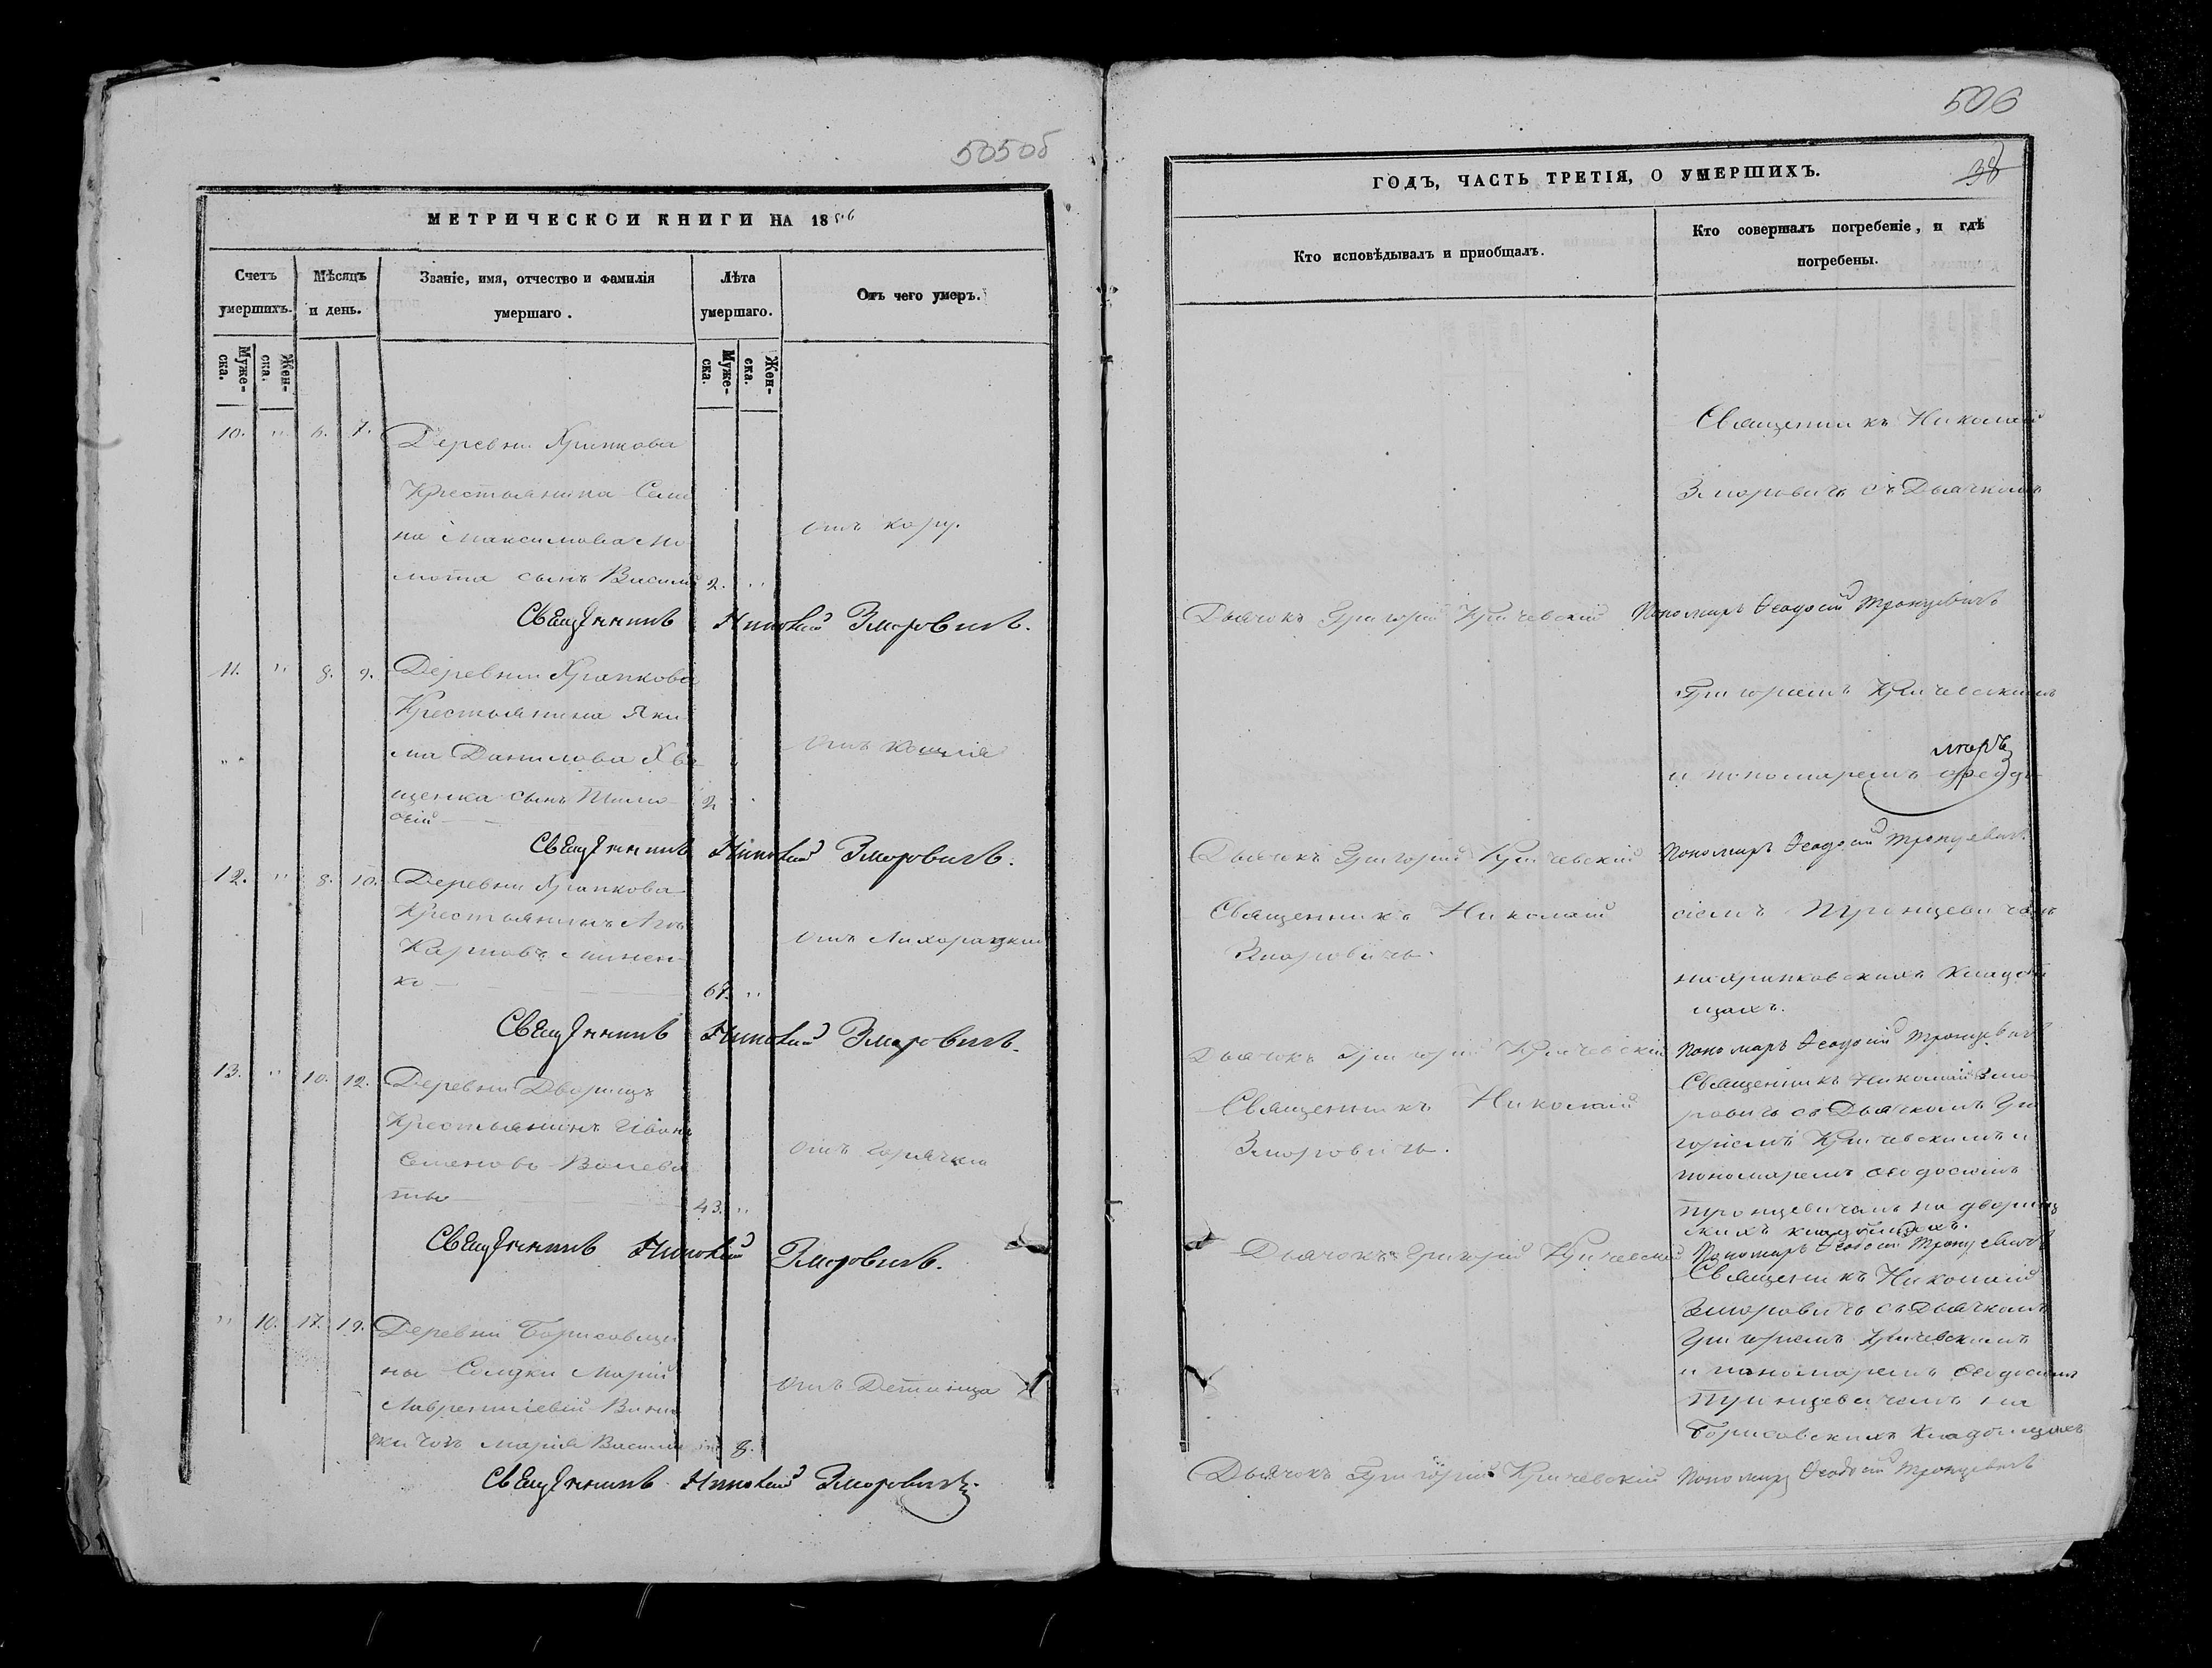 505об
МЕТРИЧЕСКОЙ КНИГИ НА 1856
Счетъ умершихъ.
Мѣсяцъ и день.
Званіе, имя, отчество и фамилія умершаго.
Лѣта умершаго.
Отъ чего умеръ.
Муже-ска.
Жен-ска.
Муже-ска.
Жен-ска.
10. " 6. 7. Деревни Храпкова
Крестьянина Семе
на Максимова
сынъ Василій 2. "
отъ кору.
Священникъ Николай Зморовичъ.
11. " 8. 9. Деревни Храпкова
Крестьянина Яки
ма Данилова Хва
щенка сынъ Тимо
ѳей 2
отъ кашля
Священникъ Николай Зморовичъ.
12. " 8. 10. Деревни Храпкова
Крестьянинъ
Карповъ Минен
ко 67. "
отъ Лихорадки
Священникъ Николай Зморовичъ.
13. " 10. 12. Деревни Дворищъ
Крестьянинъ Иванъ
Семеновъ
43. "
отъ горячки
Священникъ Николай Зморовичъ.
" 10. 17. 19. Деревни Борисовщи
ны Солдки Маріи
Лаврентіевой
Марія 8.
отъ Детинца
Священникъ Николай Зморовичъ
506
38
ГОДЪ, ЧАСТЬ ТРЕТІЯ, О УМЕРШИХЪ.
Кто исповѣдывалъ и приобщалъ.
Кто совершалъ погребеніе, и гдѣ погребены.
Священникъ Николай
Зморовичъ съ Дьячкомъ
Дьячокъ Григорій Кричевскій Пономарь Ѳеодосій Тронцевичъ
Григоріемъ Кричевскимъ
и пономаремъ Ѳеодо
Дьячокъ Григорій Кричевскій Пономарь Ѳеодосій Тронцевичъ
Священникъ Николай
Зморовичъ.
сіемъ Тронцевичемъ
на Храпковскихъ кладби
щахъ.
Дьячокъ Григорій Кричевскій Пономарь Ѳеодосій Тронцевичъ
Священникъ Николай
Зморовичъ.
Священникъ Николай Змо
ровичъ съ Дьячкомъ Гри
горіемъ Кричевскимъ и
пономаремъ Ѳеодосіемъ
Тронцевичемъ на дворищ
скихъ кладбищахъ.
Дьячокъ Григорій Кричевскій Пономарь Ѳеодосій Тронцевичъ
Священникъ Николай
Зморовичъ съ Дьячкомъ
Григоріемъ Кричевскимъ
и пономаремъ Ѳеодосіемъ
Тронцевичемъ на
Борисовскихъ кладбищахъ
Дьячокъ Григорій Кричевскій Пономарь Ѳеодосій Тронцевичъ